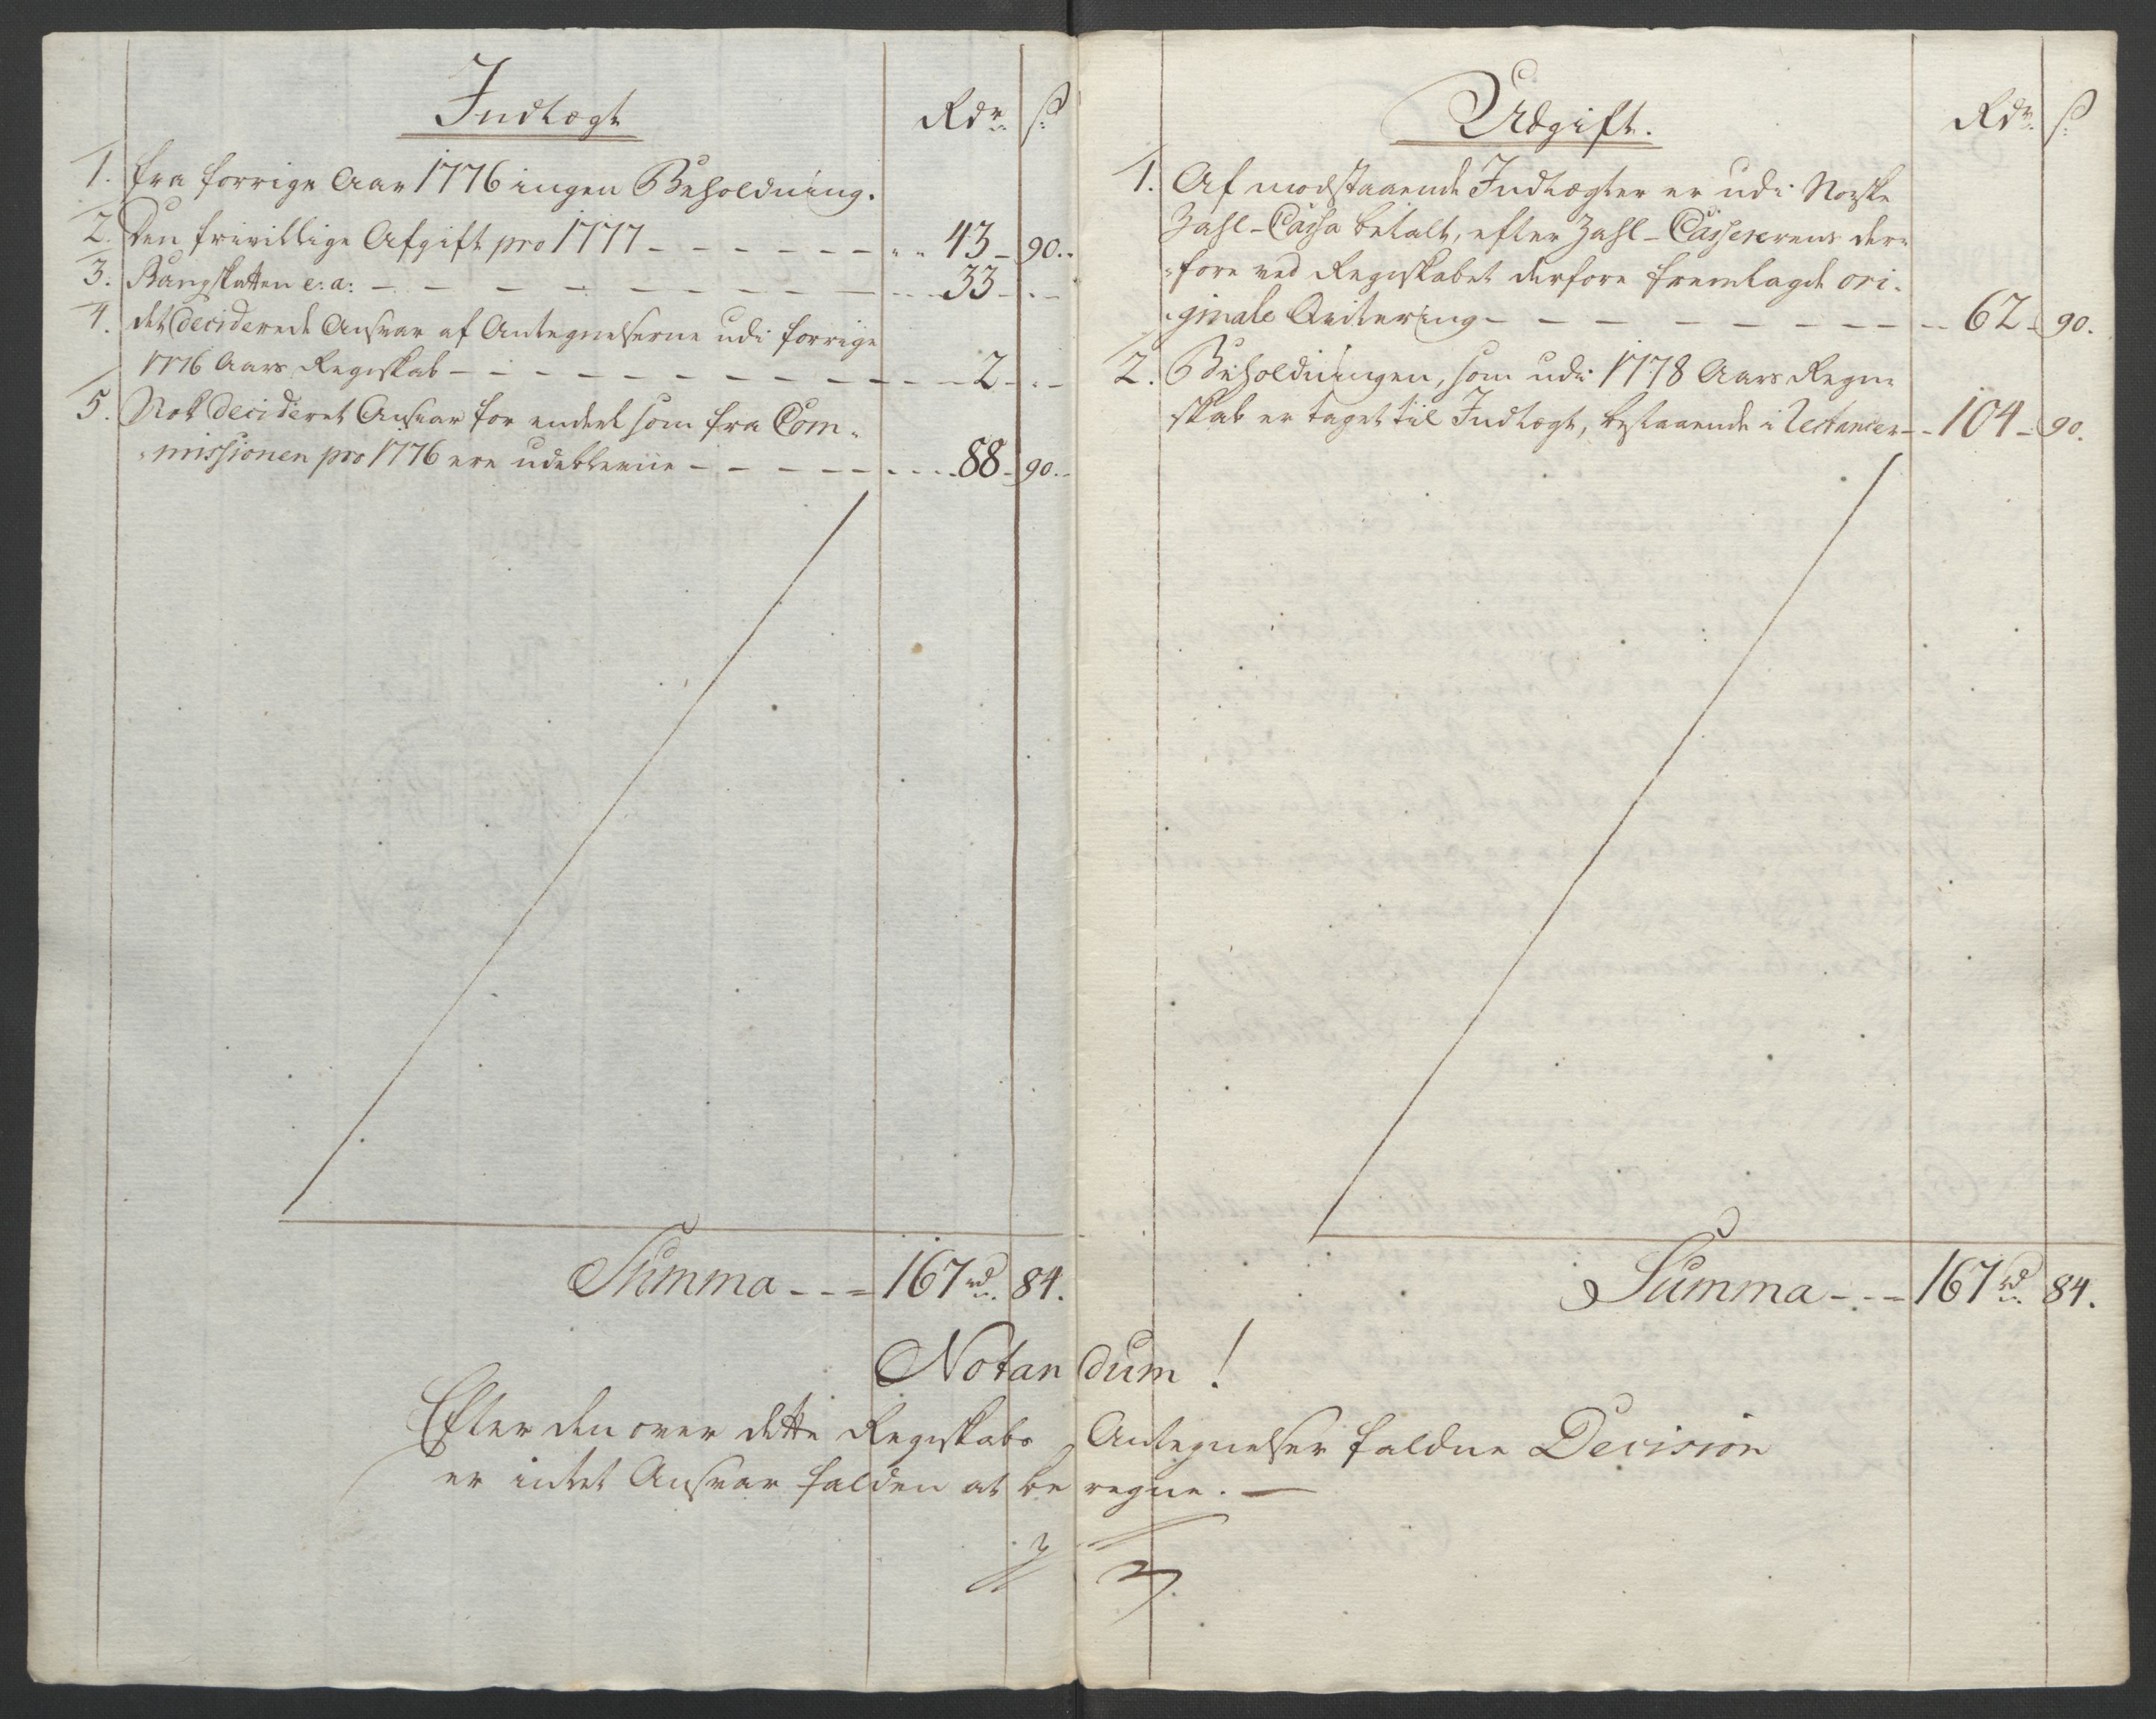 Indtægt
Rdr. ß:
1. fra forrige Aar 1776 ingen Beholdning.
2. Den frivillige Afgift pro 1777 - - - - - - 43 - 90.
3. Rangskatten e: a: - - - - - - 33 - -
4. det deciderede Ansvar af Antegnelserne udi forrige
1776 Aars Regnskab - - - - - - 2 - -
5. Nok decideret Ansvar for endeel som fra Com-
missionen pro 1776 ere udeblevne - - - - - 88 - 90.
Summa - - - 167 rd. 84.
Udgift.
Rdr. ß:
1. Af modstaaende Indtægter er udi Norske
Zahl-Cassa betalt, efter Zahl-Cassererens der-
fore ved Regnskabet derfore fremlagde ori-
ginale Qvitering - - - - - - 62 - 90.
2. Beholdningen, som udi 1778 Aars Regn-
skab er taget til Indtægt, bestaaende i Restancer - - 104 - 90.
Summa - - - 167 rd. 84.
Notandum!
Efter den over dette Regnskabs Antegnelser faldne Decision
er intet Ansvar falden at beregne. -